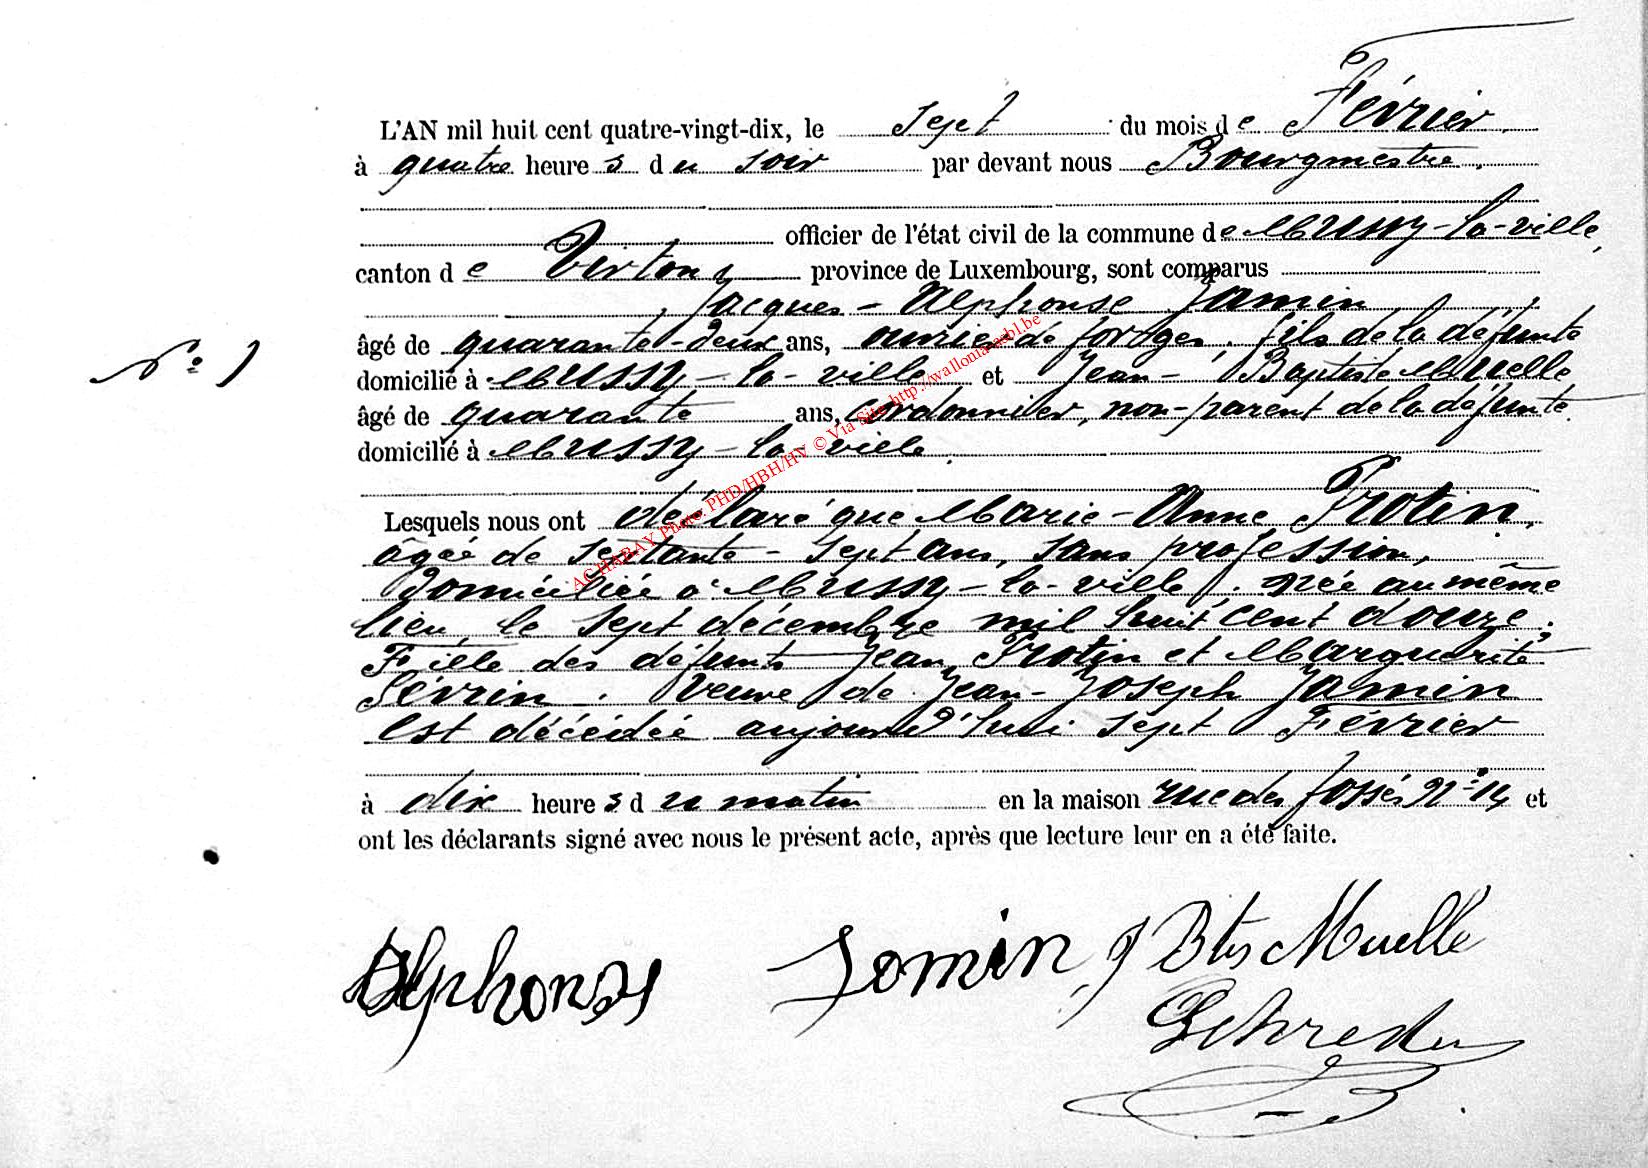 L'AN mil huit cent quatre-vingt-dix, le sept du mois de Février
à quatre heures du soir par devant nous Bourgmestre.
officier de l'état civil de la commune de Mussy-la-ville,
canton de Virton, province de Luxembourg, sont comparus
Jacques-Alphonse Jamin
âgé de quarante-deux ans, ouvrier de forges, fils de la défunte
N° 7
domicilié à Mussy-la-ville et Jean-Baptiste Muelle
âgé de quarante ans, cordonnier, non-parent de la défunte
domicilié à Mussy-la-ville.
Lesquels nous ont déclaré que Marie-Anne Protin,
âgée de septante-sept ans, sans profession,
domiciliée à Mussy-la-ville, née au même
lieu, le sept décembre mil huit cent douze;
Fille des défunts Jean Protin et Marguerite
Sévrin. Veuve de Jean-Joseph Jamin
est décédée aujourd'hui sept Février
à dix heures du matin en la maison rue des fossés N° 14 et
ont les déclarants signé avec nous le présent acte, après que lecture leur en a été faite.
Alphonse Jamin J Bte Muelle
AC HABAY Photo: PHD/HBH/HV © Via Site http://wallonia-asbl.be